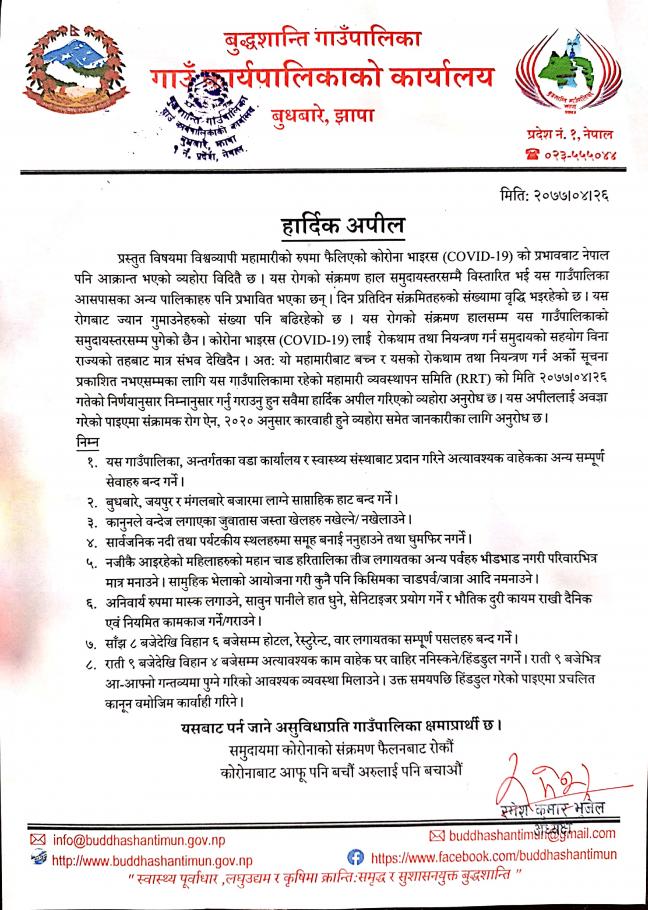 बुद्धशान्ति गाउँपालिका
गाउँ कार्यपालिकाको कार्यालय
बुधबारे, झापा
प्रदेश नं. १, नेपाल
☎ ०२३-५५५०४४
मिति: २०७७।०४।२६
हार्दिक अपील
प्रस्तुत विषयमा विश्वव्यापी महामारीको रुपमा फैलिएको कोरोना भाइरस (COVID-19) को प्रभावबाट नेपाल
पनि आक्रान्त भएको व्यहोरा विदितै छ । यस रोगको संक्रमण हाल समुदायस्तरसम्मै विस्तारित भई यस गाउँपालिका
आसपासका अन्य पालिकाहरु पनि प्रभावित भएका छन् । दिन प्रतिदिन संक्रमितहरुको संख्यामा वृद्धि भइरहेको छ । यस
रोगबाट ज्यान गुमाउनेहरुको संख्या पनि बढिरहेको छ । यस रोगको संक्रमण हालसम्म यस गाउँपालिकाको
समुदायस्तरसम्म पुगेको छैन । कोरोना भाइरस (COVID-19) लाई रोकथाम तथा नियन्त्रण गर्न समुदायको सहयोग विना
राज्यको तहबाट मात्र संभव देखिदैन । अत: यो महामारीबाट बच्न र यसको रोकथाम तथा नियन्त्रण गर्न अर्को सूचना
प्रकाशित नभएसम्मका लागि यस गाउँपालिकामा रहेको महामारी व्यवस्थापन समिति (RRT) को मिति २०७७।०४।२६
गतेको निर्णयानुसार निम्नानुसार गर्नु गराउनु हुन सवैमा हार्दिक अपील गरिएको व्यहोरा अनुरोध छ । यस अपीललाई अवज्ञा
गरेको पाइएमा संक्रामक रोग ऐन, २०२० अनुसार कारवाही हुने व्यहोरा समेत जानकारीका लागि अनुरोध छ ।
निम्न
१. यस गाउँपालिका, अन्तर्गतका वडा कार्यालय र स्वास्थ्य संस्थाबाट प्रदान गरिने अत्यावश्यक वाहेकका अन्य सम्पूर्ण
सेवाहरु बन्द गर्ने ।
२. बुधबारे, जयपुर र मंगलबारे बजारमा लाग्ने साप्ताहिक हाट बन्द गर्ने ।
३. कानुनले वन्देज लगाएका जुवातास जस्ता खेलहरु नखेल्ने/ नखेलाउने ।
४. सार्वजनिक नदी तथा पर्यटकीय स्थलहरुमा समूह बनाई ननुहाउने तथा घुमफिर नगर्ने ।
५. नजीकै आइरहेको महिलाहरुको महान चाड हरितालिका तीज लगायतका अन्य पर्वहरु भीडभाड नगरी परिवारभित्र
मात्र मनाउने । सामुहिक भेलाको आयोजना गरी कुनै पनि किसिमका चाडपर्व/जात्रा आदि नमनाउने ।
६. अनिवार्य रुपमा मास्क लगाउने, सावुन पानीले हात धुने, सेनिटाइजर प्रयोग गर्ने र भौतिक दुरी कायम राखी दैनिक
एवं नियमित कामकाज गर्ने/गराउने ।
७. साँझ ८ बजेदेखि विहान ६ बजेसम्म होटल, रेस्टुरेन्ट, वार लगायतका सम्पूर्ण पसलहरु बन्द गर्ने ।
८. राती ९ बजेदेखि विहान ४ बजेसम्म अत्यावश्यक काम वाहेक घर वाहिर ननिस्कने/हिंडडुल नगर्ने । राती ९ बजेभित्र
आ-आफ्नो गन्तव्यमा पुग्ने गरिको आवश्यक व्यवस्था मिलाउने । उक्त समयपछि हिंडडुल गरेको पाइएमा प्रचलित
कानून वमोजिम कार्वाही गरिने ।
यसबाट पर्न जाने असुविधाप्रति गाउँपालिका क्षमाप्रार्थी छ ।
समुदायमा कोरोनाको संक्रमण फैलनबाट रोकौं
कोरोनाबाट आफू पनि बचौं अरुलाई पनि बचाऔं
रमेश कुमार भुजेल
अध्यक्ष
info@buddhashantimun.gov.np
buddhashantimun@gmail.com
http://www.buddhashantimun.gov.np
https://www.facebook.com/buddhashantimun
" स्वास्थ्य पूर्वाधार ,लघुउद्यम र कृषिमा क्रान्ति:समृद्ध र सुशासनयुक्त बुद्धशान्ति "